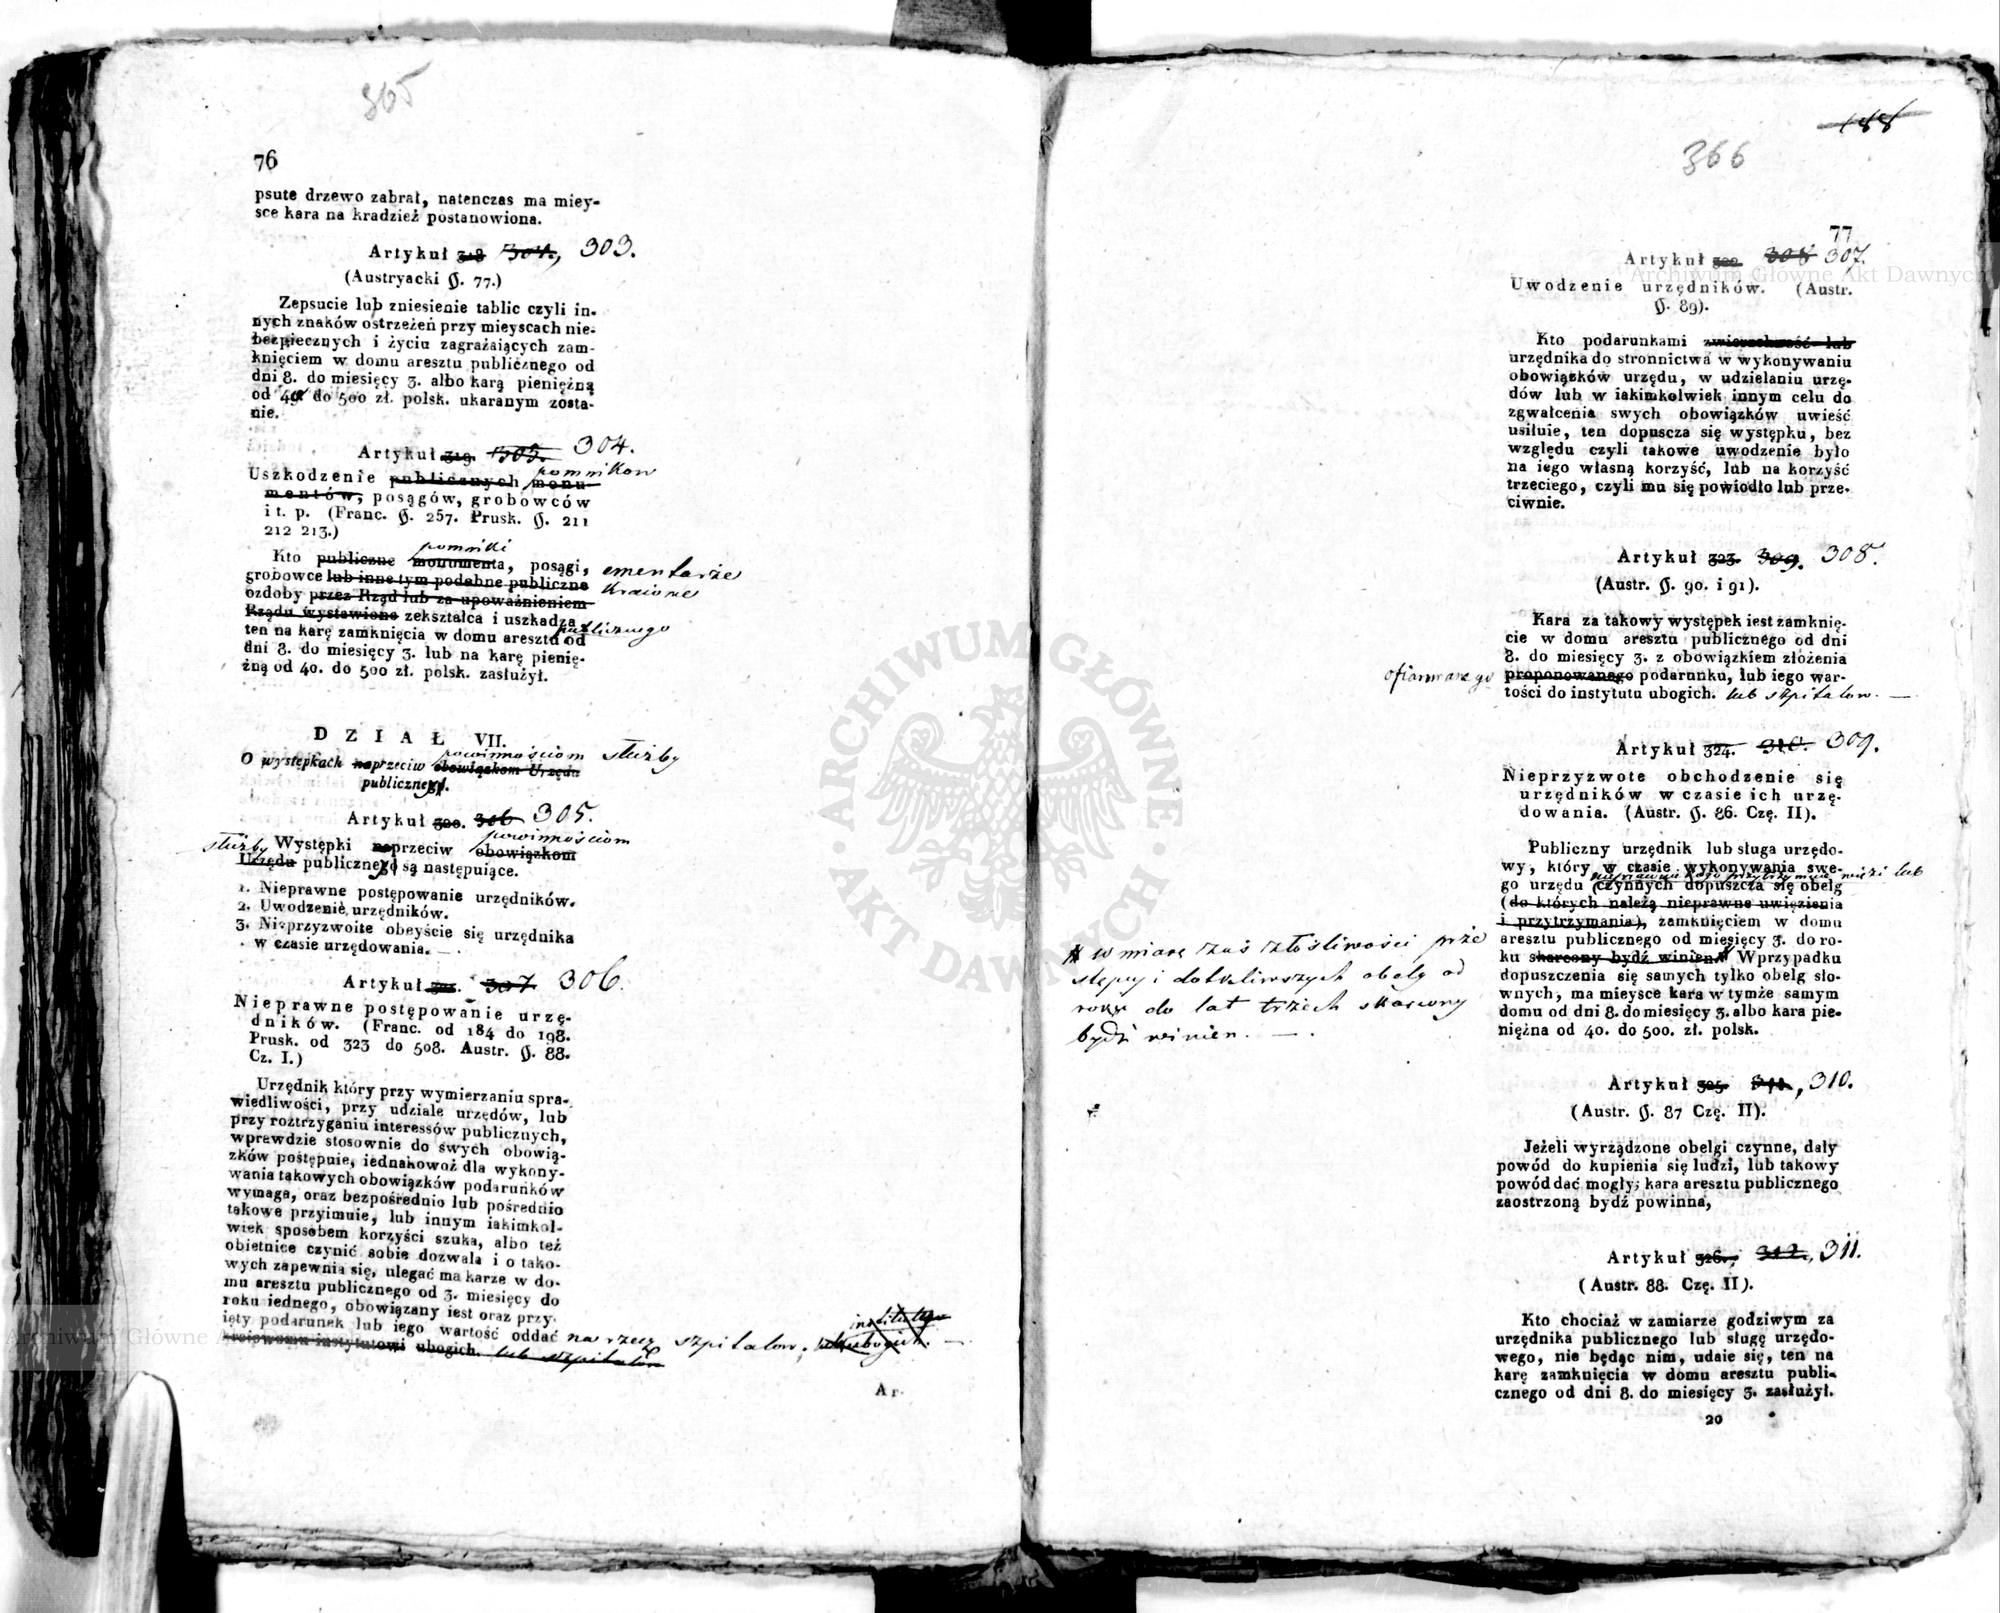 365
76
psute drzewo zabrał, natenczas ma miey-
sce kara na kradzież postanowiona.
Artykuł 318 304, 303.
(Austryacki §. 77.)
Zepsucie lub zniesienie tablic czyli in-
nych znaków ostrzeżeń przy mieyscach nie-
bezpiecznych i życiu zagrażaiących zam-
knięciem w domu aresztu publicznego od
dni 8. do miesięcy 3. albo karą pieniężną
od 40 do 500 zł. polsk. ukaranym zosta-
nie.
Artykuł 319 305. 304.
pomnikow
Uszkodzenie publicznych monu-
mentów, posągów, grobowców
i t. p. (Franc. §. 257. Prusk. §. 211
212 213.)
pomniki
Kto publiczne monumenta, posągi, cmentarże
grobowce lub inne tym podobne publiczne kraiowe
ozdoby przez Rząd lub za upoważnieniem
Rządu wystawione zekształca i uszkadza
publicznego
ten na karę zamknięcia w domu aresztu od
dni 8. do miesięcy 3. lub na karę pienię-
żną od 40. do 500 zł. polsk. zasłużył.
DZIAŁ VII.
powinnościom służby
O występkach naprzeciw obowiązkom Urzędu
publicznego.
Artykuł 320. 306 305.
powinnościom
służby Występki naprzeciw obowiązkom
Urzędu publicznego są następuiące.
1. Nieprawne postępowanie urzędników.
2. Uwodzenie urzędników.
3. Nieprzyzwoite obeyście się urzędnika
w czasie urzędowania.
Artykuł 321. 307. 306.
Nieprawne postępowanie urzę-
dników. (Franc. od 184 do 198.
Prusk. od 323 do 508. Austr. §. 88.
Cz. I.)
Urzędnik który przy wymierzaniu spra-
wiedliwości, przy udziale urzędów, lub
przy roztrzyganiu interessów publicznych,
wprawdzie stosownie do swych obowią-
zków postępuie, iednakowoż dla wykony-
wania takowych obowiązków podarunków
wymaga, oraz bezpośrednio lub pośrednio
takowe przyimuie, lub innym iakimkol-
wiek sposobem korzyści szuka, albo też
obietnice czynić sobie dozwala i o tako-
wych zapewnia się, ulegać ma karze w do-
mu aresztu publicznego od 3. miesięcy do
roku iednego, obowiązany iest oraz przy-
ięty podarunek lub iego wartość oddać na rzecz szpitalow,
ubogich. lub szpitalów
Ar-
188
366
77
Artykuł 322. 308 307.
Uwodzenie urzędników. (Austr.
§. 89).
Kto podarunkami zwierzchność lub
urzędnika do stronnictwa w wykonywaniu
obowiązków urzędu, w udzielaniu urzę-
dów lub w iakimkolwiek innym celu do
zgwałcenia swych obowiązków uwieść
usiłuie, ten dopuscza się występku, bez
względu czyli takowe uwodzenie było
na iego własną korzyść, lub na korzyść
trzeciego, czyli mu się powiodło lub prze-
ciwnie.
Artykuł 323. 309. 308.
(Austr. §. 90. i 91).
Kara za takowy występek iest zamknię-
cie w domu aresztu publicznego od dni
8. do miesięcy 3. z obowiązkiem złożenia
ofiarowanego proponowanego podarunku, lub iego war-
tości do instytutu ubogich. lub szpitalow.
Artykuł 324. 310. 309.
Nieprzyzwote obchodzenie się
urzędników w czasie ich urzę-
dowania. (Austr. §. 86. Czę. II).
Publiczny urzędnik lub sługa urzędo-
wy, który w czasie wykonywania swe-
go urzędu czynnych dopuszcza się obelg
(do których należą nieprawne uwięzienia
i przytrzymania), zamknięciem w domu
aresztu publicznego od miesięcy 3. do ro-
ku skarcony bydź winien. Wprzypadku
dopuszczenia się samych tylko obelg sło-
wnych, ma mieysce kara w tymże samym
domu od dni 8. do miesięcy 3. albo kara pie-
niężna od 40. do 500. zł. polsk.
w miarę zaś złośliwości prze
stępcy i dotkliwszych obelg od
roku do lat trzech skarcony
bydź winien.
Artykuł 325. 311, 310.
(Austr. §. 87 Czę. II).
Jeżeli wyrządzone obelgi czynne, dały
powód do kupienia się ludzi, lub takowy
powód dać mogły; kara aresztu publicznego
zaostrzoną bydź powinna,
Artykuł 326. 312, 311.
(Austr. 88. Czę. II).
Kto chociaż w zamiarze godziwym za
urzędnika publicznego lub sługę urzędo-
wego, nie będąc nim, udaie się, ten na
karę zamknięcia w domu aresztu publi-
cznego od dni 8. do miesięcy 3. zasłużył.
20
ARCHIWUM GŁÓWNE AKT DAWNYCH
Archiwum Główne Akt Dawnych
Archiwum Główne